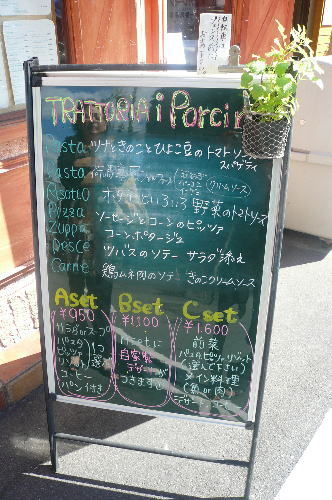 TRATTORIA i Porcin
Pasta ツナときのことひよこ豆のトマトソース
スパゲティ
Pasta
クリームソース
Risotto ホタテといろいろ野菜のトマトソース
Pizza ソーセージとコーンのピッツァ
Zuppa コーンポタージュ
Pesce ツバスのソテー サラダ添え
Carne 鶏ムネ肉のソテー きのこクリームソース
A set
¥950
サラダ or スープ
パスタ
ピッツァ
リゾット
1つ
選ぶ
コーヒー
パン付き
B set
¥1,100
Asetに
自家製
デザートが
つきます
C set
¥1,600
前菜
パスタ、ピッツァ、リゾット
(選んで下さい)
メイン料理
(魚or肉)
デザート